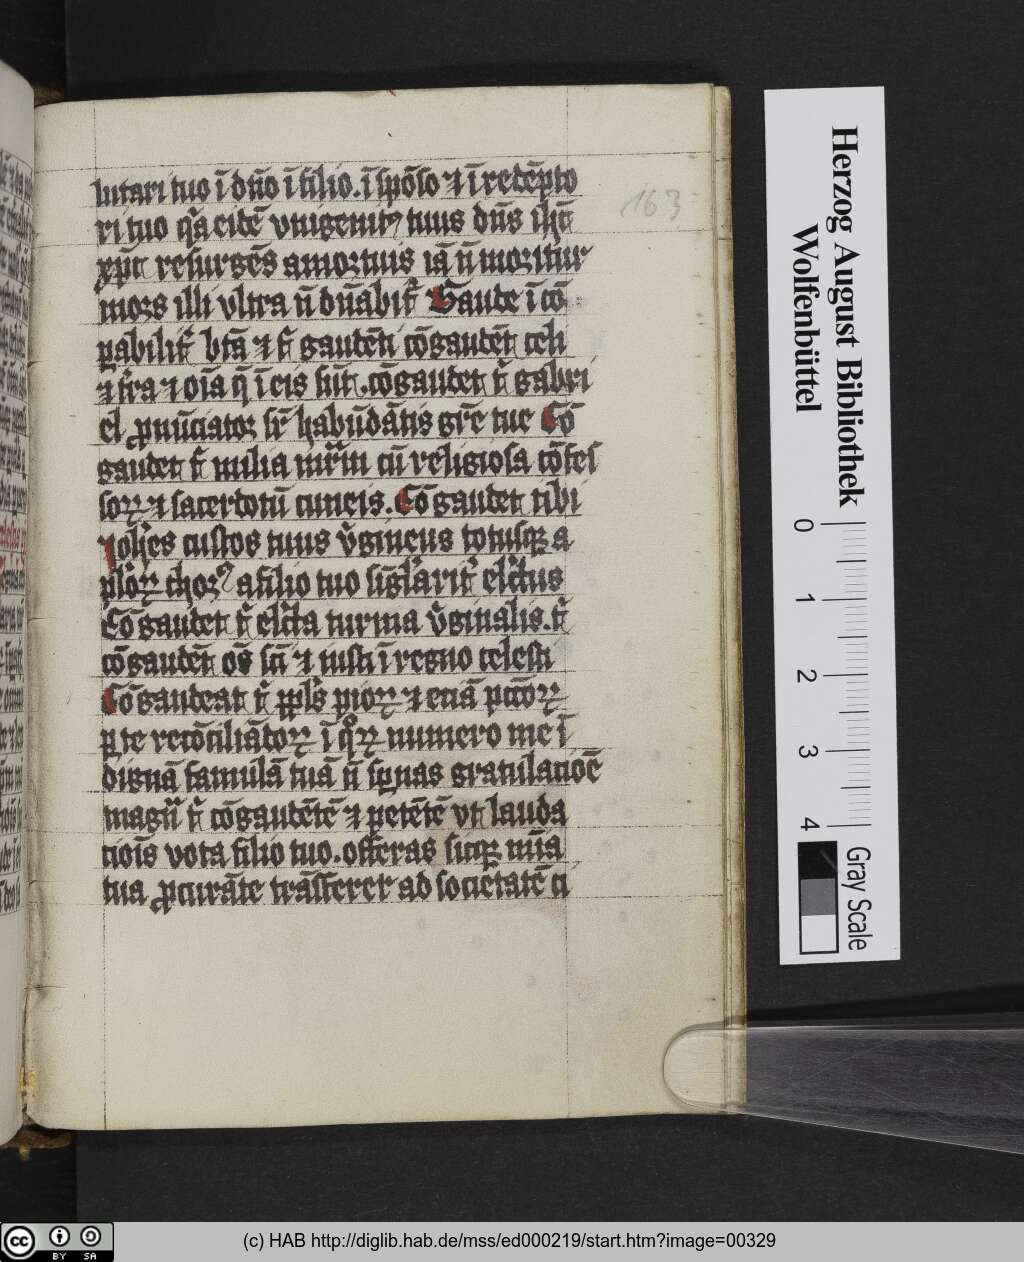 lutari tuo ī dn̄o ī filio. ī spōso ⁊ ī redēpto
ri tuo q̄a eidē vnigenitꝰ tuus dn̄s ihc̄
xp̄c resurgēs amortuis iā n̄ moritur
mors illi vltra n̄ dn̄abit᷑ Gaude ī cō
pabilit᷑ bt̄a ⁊ t᷑ gaudēti cōgaudēt celi
⁊ t᷑ra ⁊ oīa q̄ ī eis sūt. cōgaudet t᷑ gabri
el ꝓnūciator sr̄ habūdātis gr̄e tue Cō
gaudet t᷑ milia mr̄m cū religiosa cōfes
soꝝ ⁊ sacerdotū cuneis. Cōgaudet tibi
Ioh̄es custos tuus v᷑gineus totusqꝫ a
pl̄oꝝ chorꝰ a filio tuo sīgl̄arit᷑ el̄ctus
Cōgaudet t᷑ el̄cta turma v᷑ginalis. t᷑
cōgaudēt oē̄s sc̄i ⁊ iusti ī regno celesti
Cōgaudeat t᷑ ppl̄s pioꝝ ⁊ eciā pcc̄oꝝ
ꝑ te recōciliātoꝝ ī qͦꝝ numero me ī
dignā famulā tuā n̄ spnas gratulaciōē
magn̄ t᷑ cōgaudētē ⁊ petētē vt lauda
ciois vota filio tuo. offeras sicqꝫ mīa
tua ꝓcurāte trāsferet ad societatē ci
163
Herzog August Bibliothek
Wolfenbüttel
0 1 2 3 4
Gray Scale
cc BY SA
(c) HAB http://diglib.hab.de/mss/ed000219/start.htm?image=00329